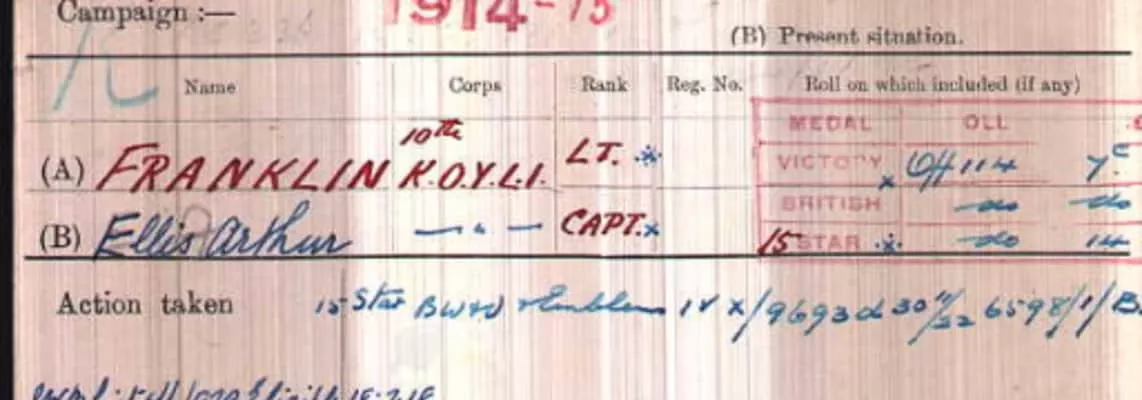 Campaign :— 1914-15
(B) Present situation.
Name Corps Rank Reg. No. Roll on which included (if any)
MEDAL OLL
10th
(A) FRANKLIN K.O.Y.L.I. LT. * VICTORY x Off 114 7c
BRITISH do do
(B) Ellis Arthur — " — CAPT. x 15 STAR * do 14
Action taken 15 Star BW&V & Emblems IV x/9693 d 30"/22 6598/1/B